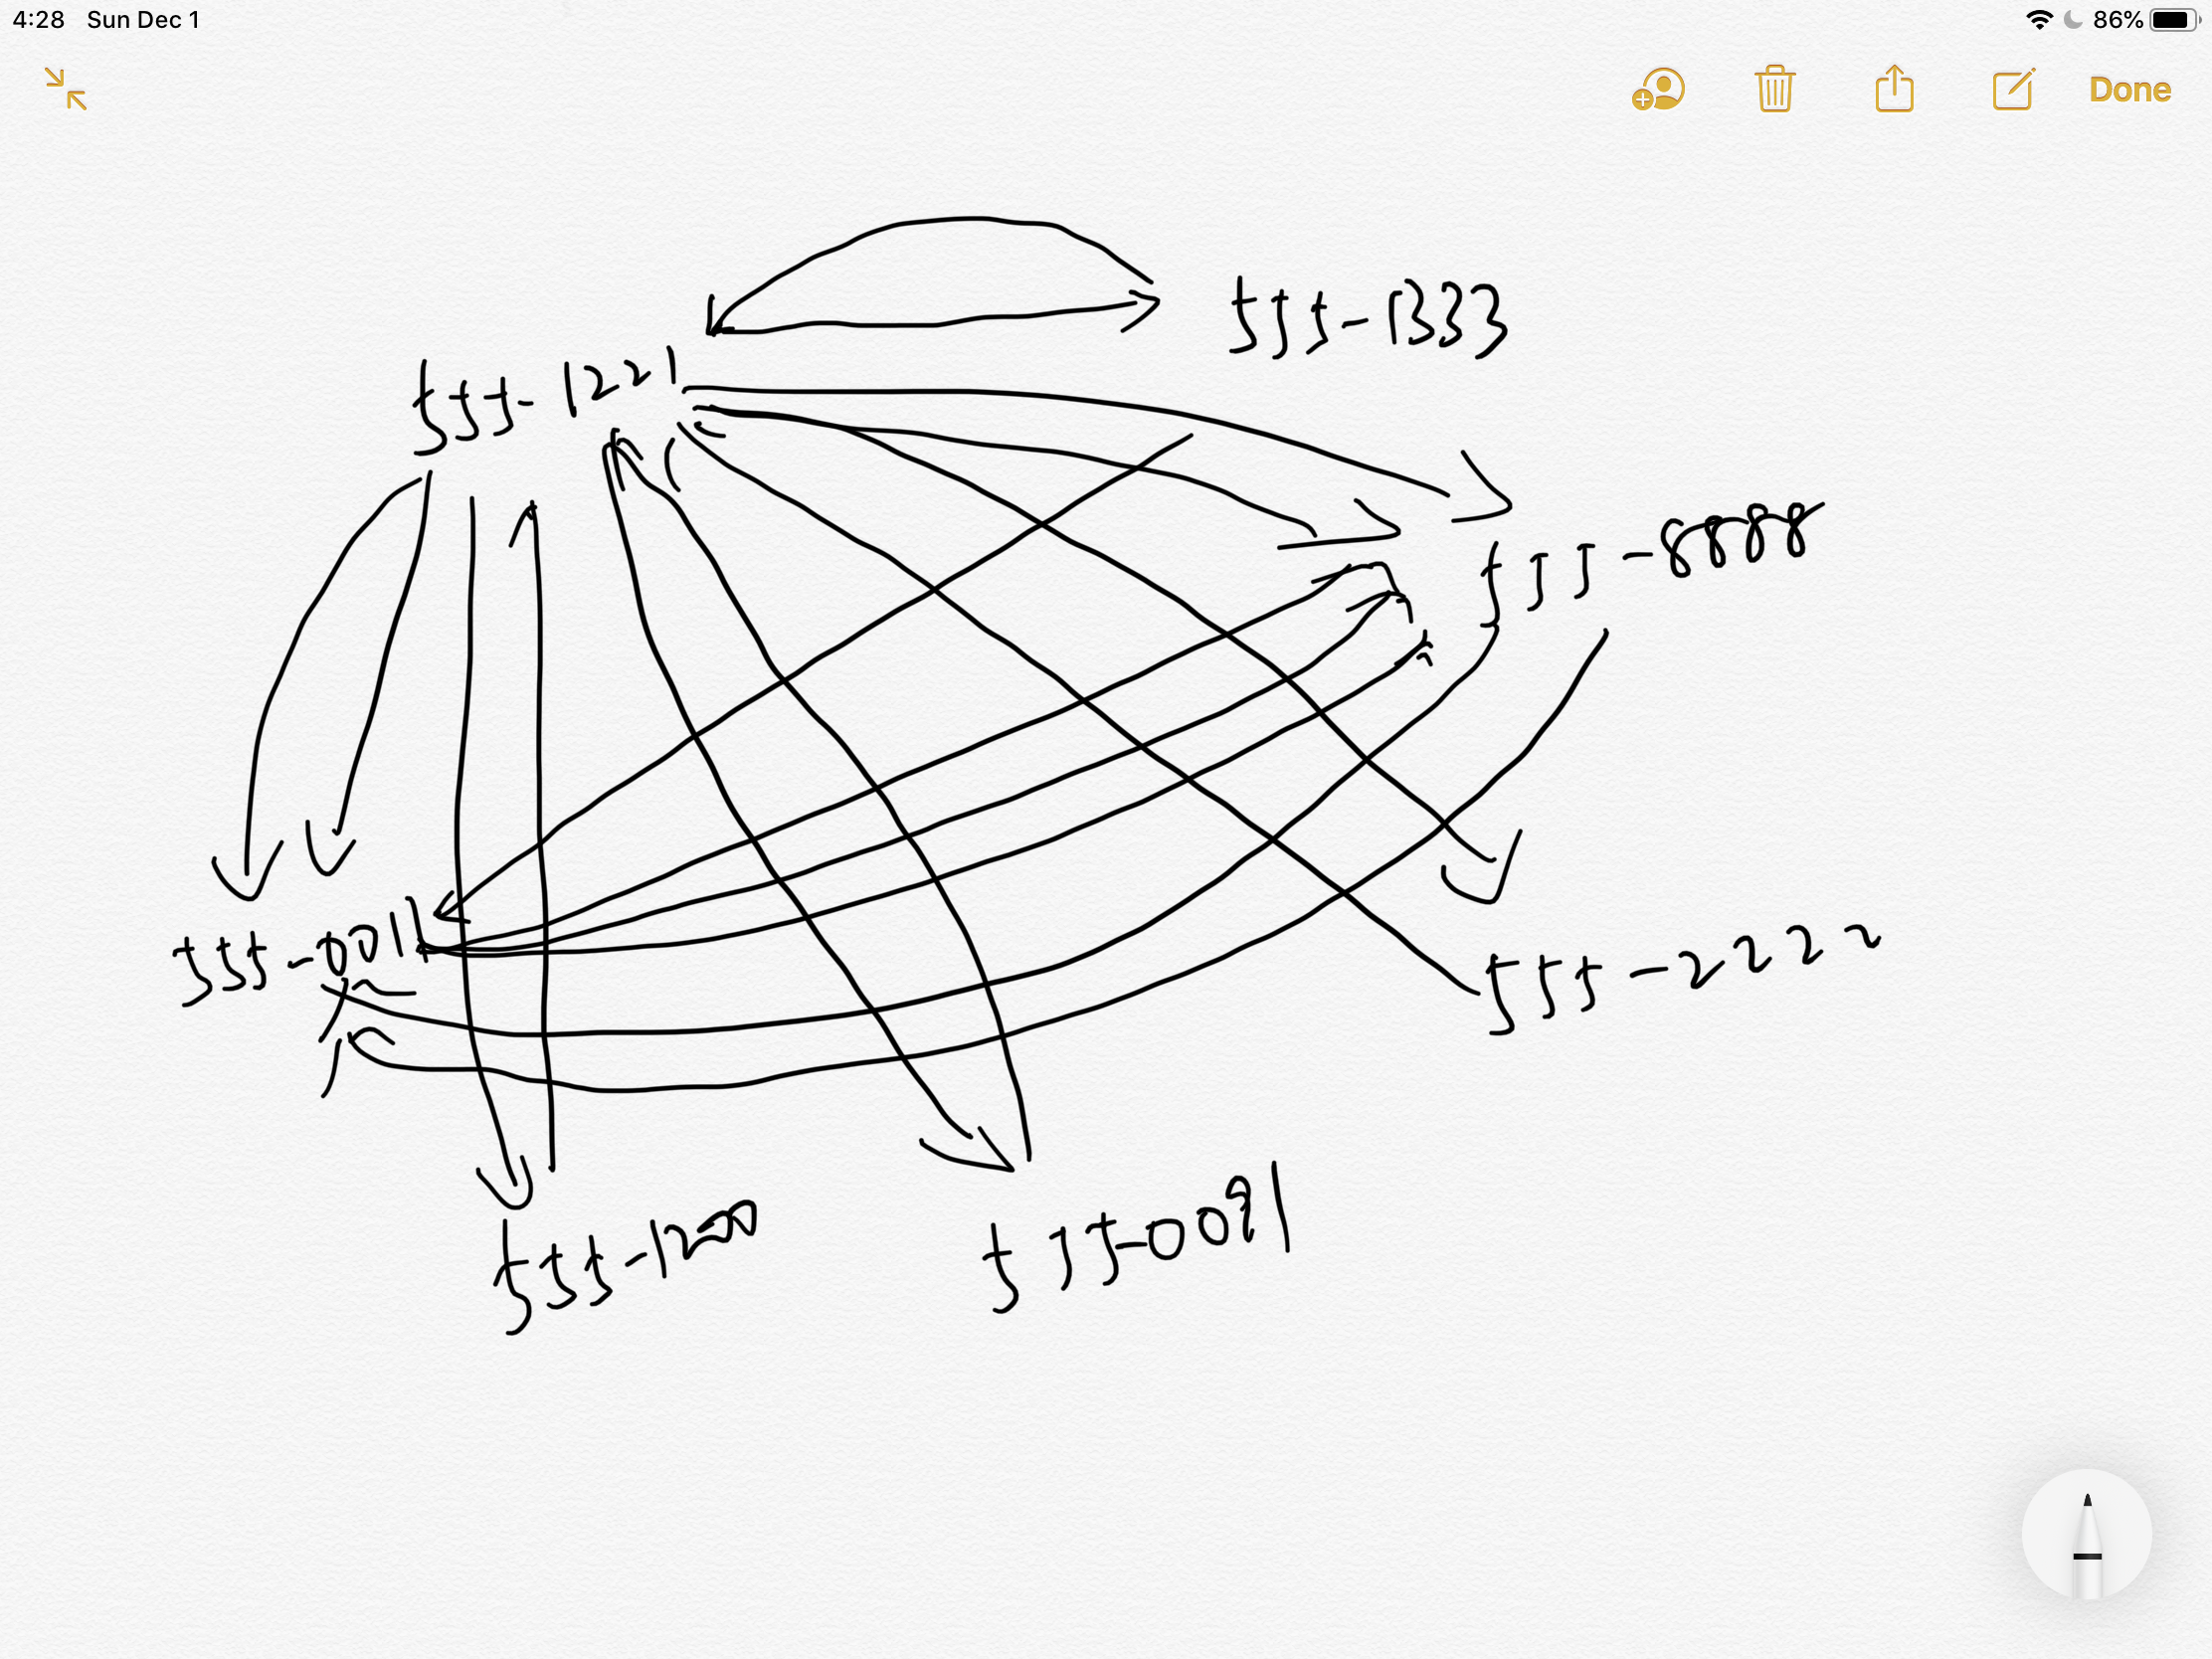 4:28 Sun Dec 1 86%
Done
555-1333
555-1221
555-8888
555-0011
555-2222
555-1200
555-0091